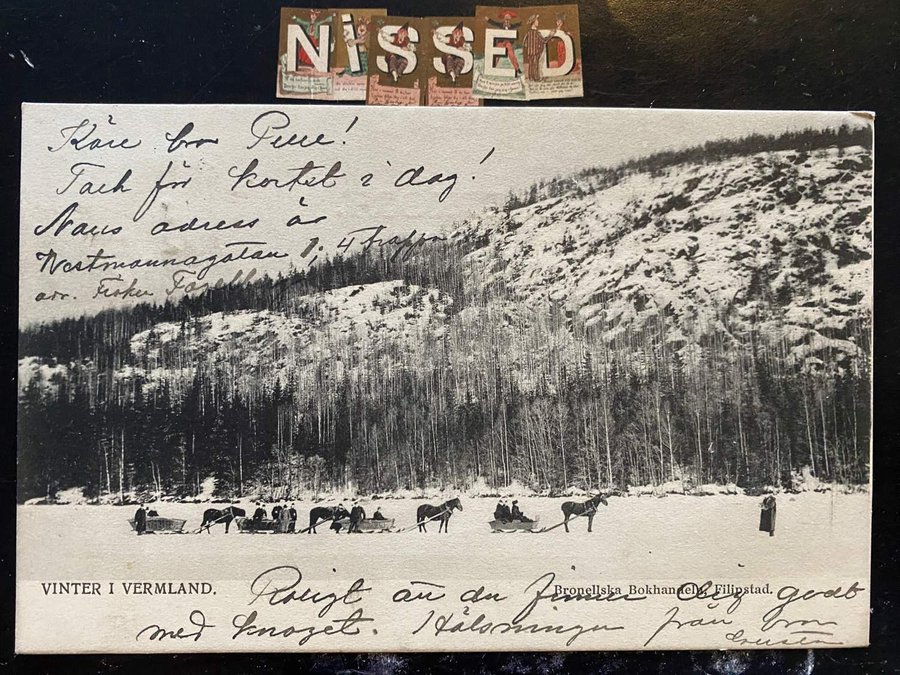 NiSSED
Käre bror Pelle!
Tack för kortet i dag!
Hans adress är
Westmannagatan 1, 4 trappor
adr. Fröken
VINTER I VERMLAND.
Bronellska Bokhandeln, Filipstad.
Roligt att du finner dig godt
med knoget. Hälsningar från bror